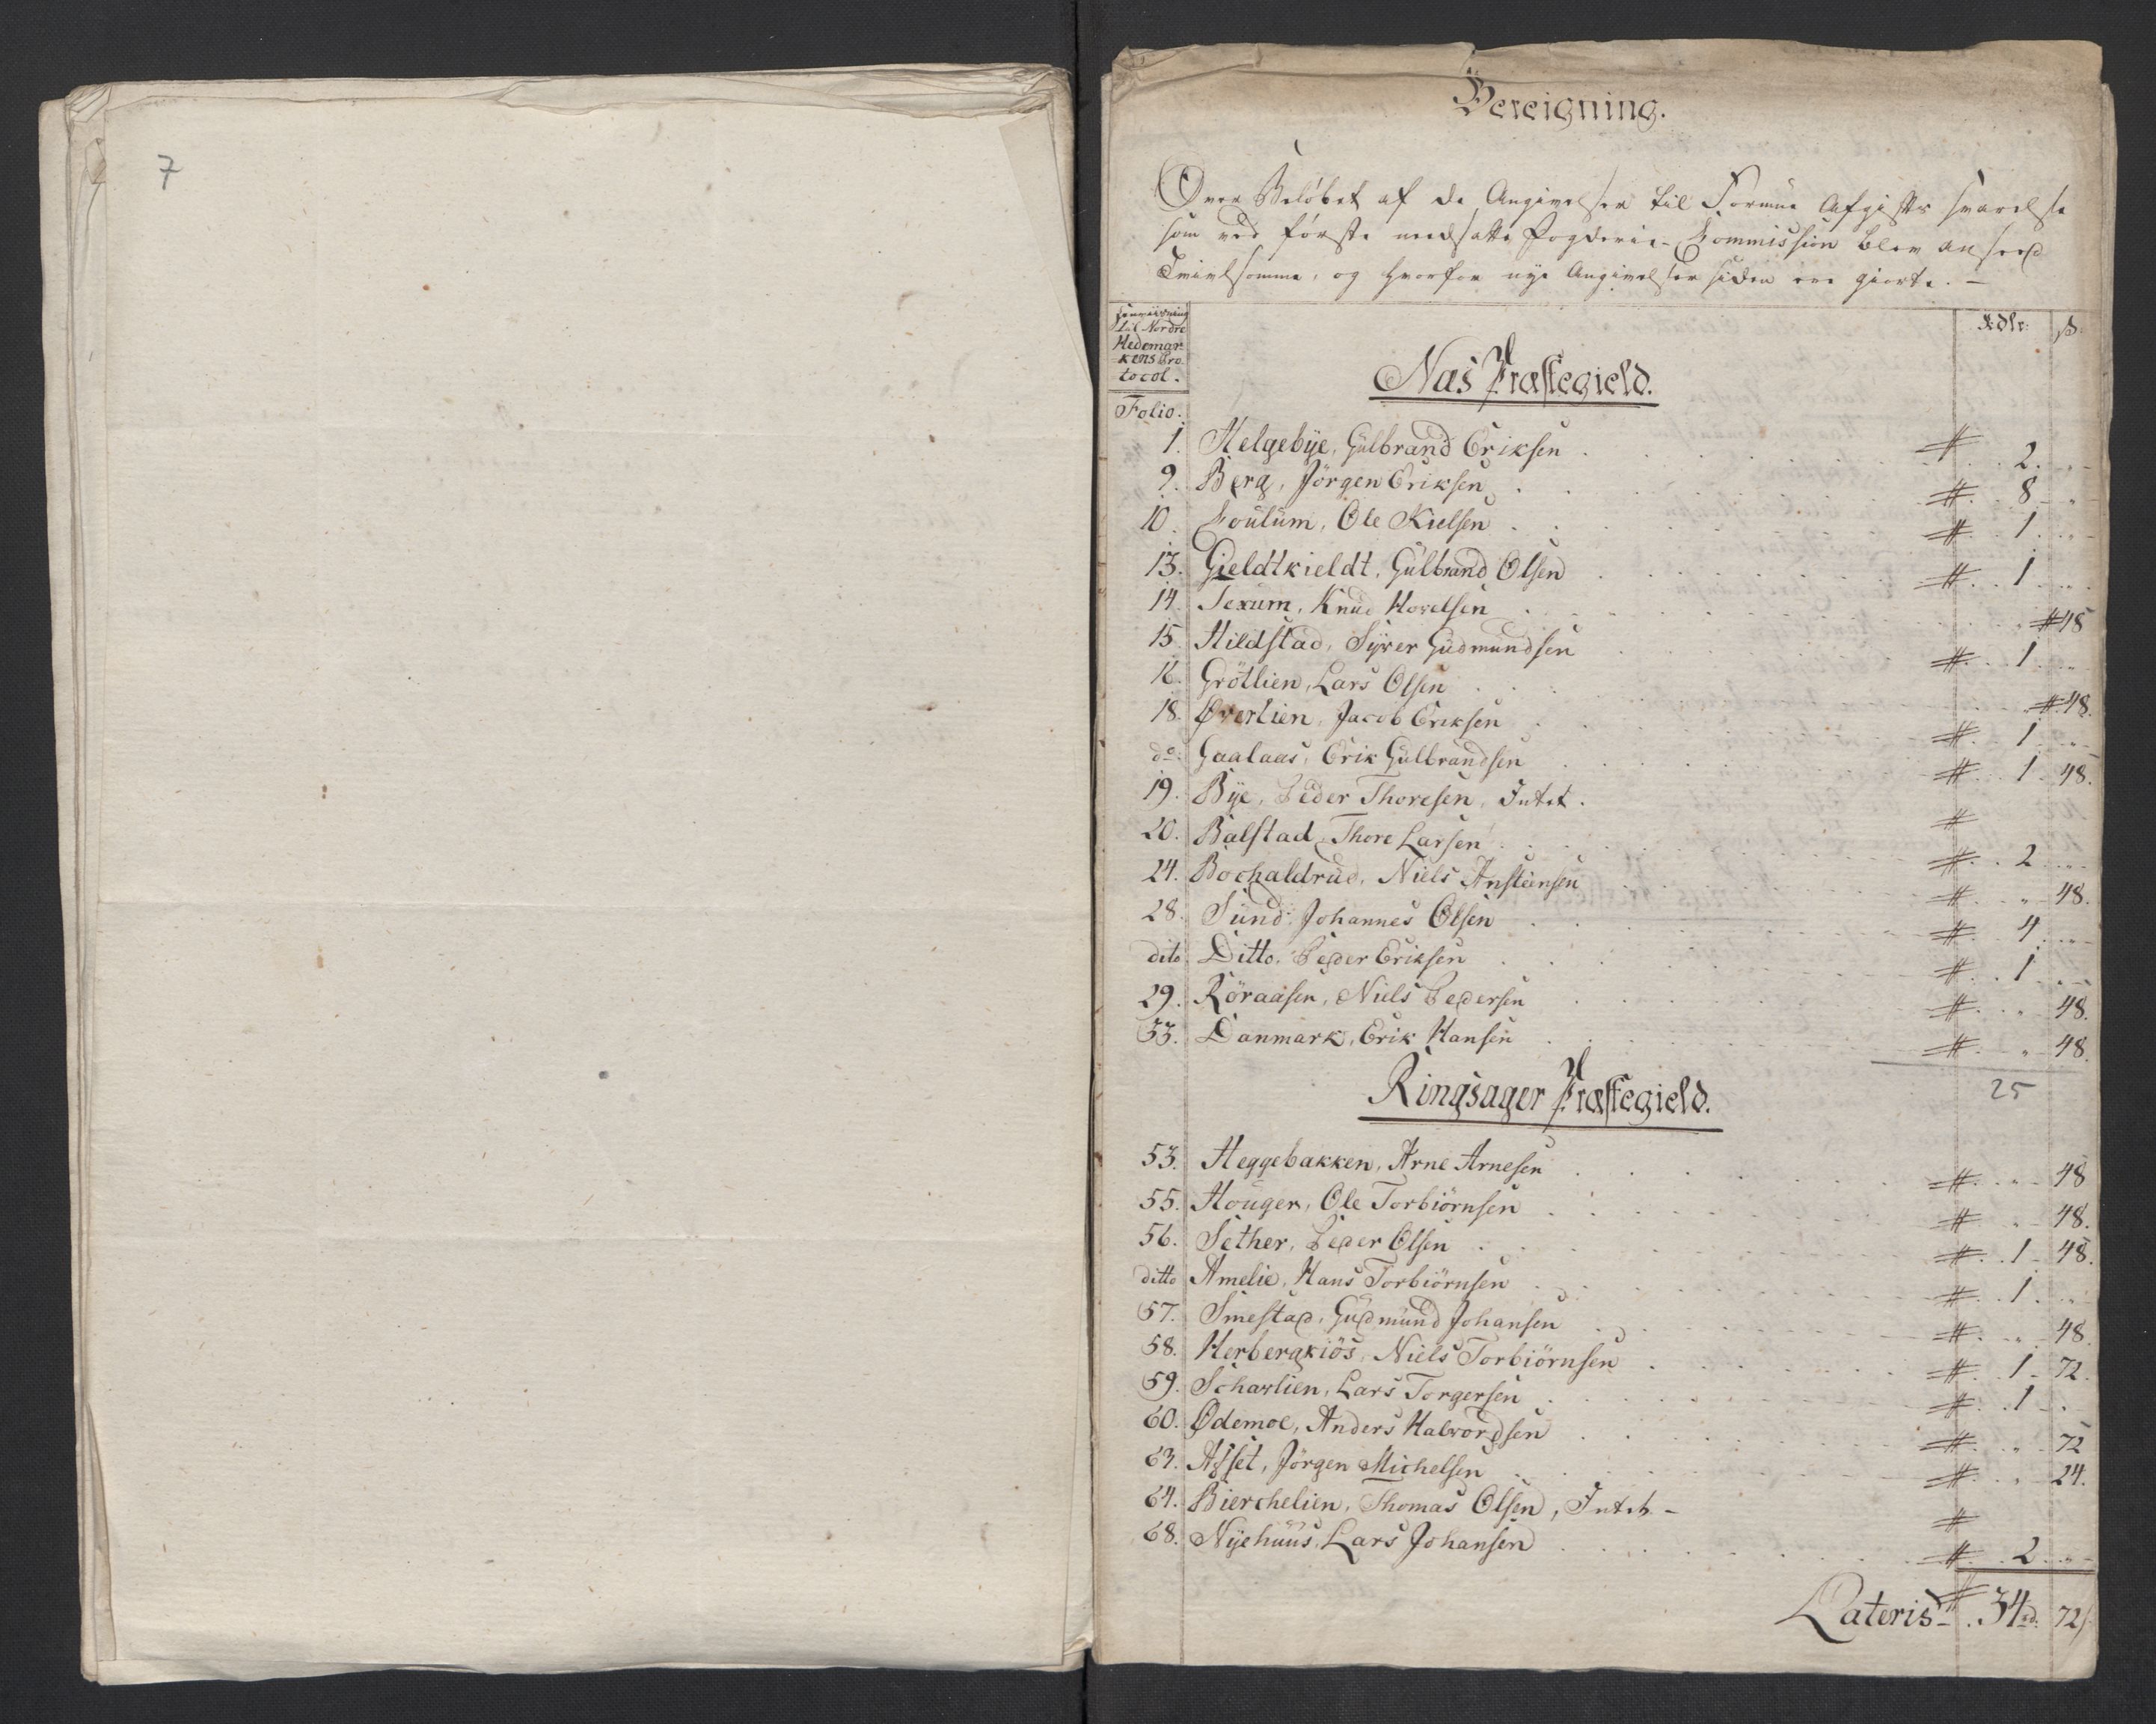 7
Bereigning.
Over Beløbet af de Angivelser til Formue Afgifts Svarelse
som ved første nedsatte Fogderie-Commission blev anseed
Tvivlsomme, og hvorfor nye Angivelser siden ere giorte. -
Henviisning
til Nordre
Hedemar-
kens Pro-
tocol.
Folio.
Rdlr: ß
Næs Præstegield.
1. Helgebÿe, Gulbrand Eriksen . # 2. "
9. Berg, Jörgen Eriksen . # 8 "
10. Foulum, Ole Nielsen . # 1. "
13. Gieldtkieldt, Gulbrand Olsen . # 1 "
14. Texum, Knud Hovelsen . " #48
15. Hildstad, Syver Gudmundsen # 1 "
16. Grötlien, Lars Olsen . #48.
18. Øverlien, Jacob Eriksen . # 1 "
do. Gaalaas, Erik Gulbrandsen . # 1. 48.
19. Bÿe, Peder Thoresen, Intet. #
20. Balstad, Thore Larsen . # 2 "
24. Bochaldrud, Niels Ansteensen # " 48.
28. Sund, Johannes Olsen . # 4 "
dito Ditto, Peder Eriksen . # 1 "
29. Röraasen, Niels Pedersen # " 48.
33. Danmark, Erik Hansen . # " 48.
25
Ringsager Præstegield.
53. Heggebakken, Arne Arnesen . # " 48
55. Houger, Ole Torbiörnsen . # " 48.
56. Sether, Peder Olsen . # 1 - 48.
ditto Amelie, Hans Torbiörnsen . # 1. "
57. Smestad, Gudmund Johansen . # " 48
58. Herbergkiös, Niels Torbiörnsen . # 1 - 72.
59. Scharlien, Lars Torgersen . # 1 -
60. Ødemoe, Anders Halvordsen . # " 72
63. Asset, Jörgen Michelsen . # " 24.
64. Bierchelien, Thomas Olsen, Intet - #
68. Nÿehuus, Lars Johansen . # 2 "
Lateris # 34rd. 72ß